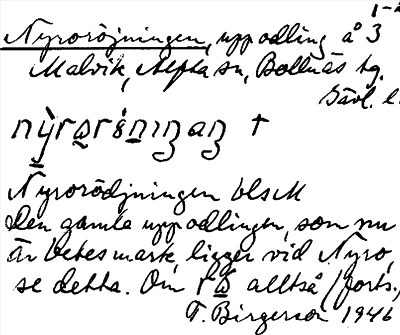 1-2
Nyroröjningen, uppodling å 3
Malvik, Alfta sn, Bollnäs tg.
Gävl. l.
Nyrorödjningen bls M
Den gamla uppodlingen, som nu
är betesmark, ligger vid Nyro,
se detta. Om alltså (forts.)
T. Birgerson 1946